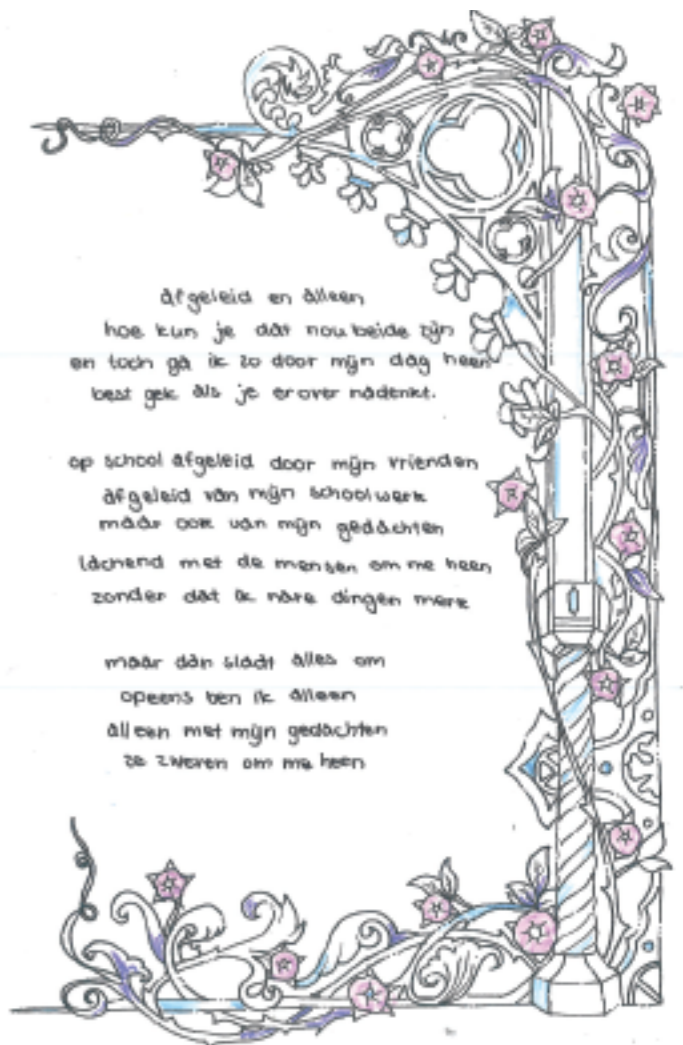 afgeleid en alleen
hoe kun je dat nou beide zijn
en toch ga ik zo door mijn dag heen
best gek als je erover nadenkt.
op school afgeleid door mijn vrienden
afgeleid van mijn schoolwerk
maar ook van mijn gedachten
lachend met de mensen om me heen
zonder dat ik nare dingen merk
maar dan slaat alles om
opeens ben ik alleen
alleen met mijn gedachten
ze zweven om me heen